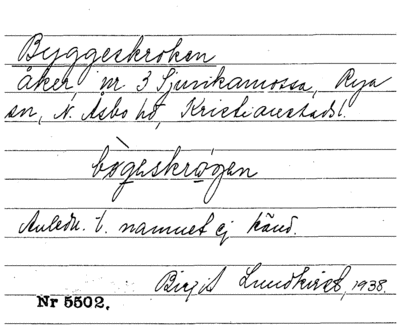 Byggeskroken
åker nr 3 Ljunikamossa, Rya
sn, N. Åsbo hd, Kristianstads l.
bògeskrøgen
Anledn. t. namnet ej känd.
Birgit Lundkvist, 1938.
Nr 5502.